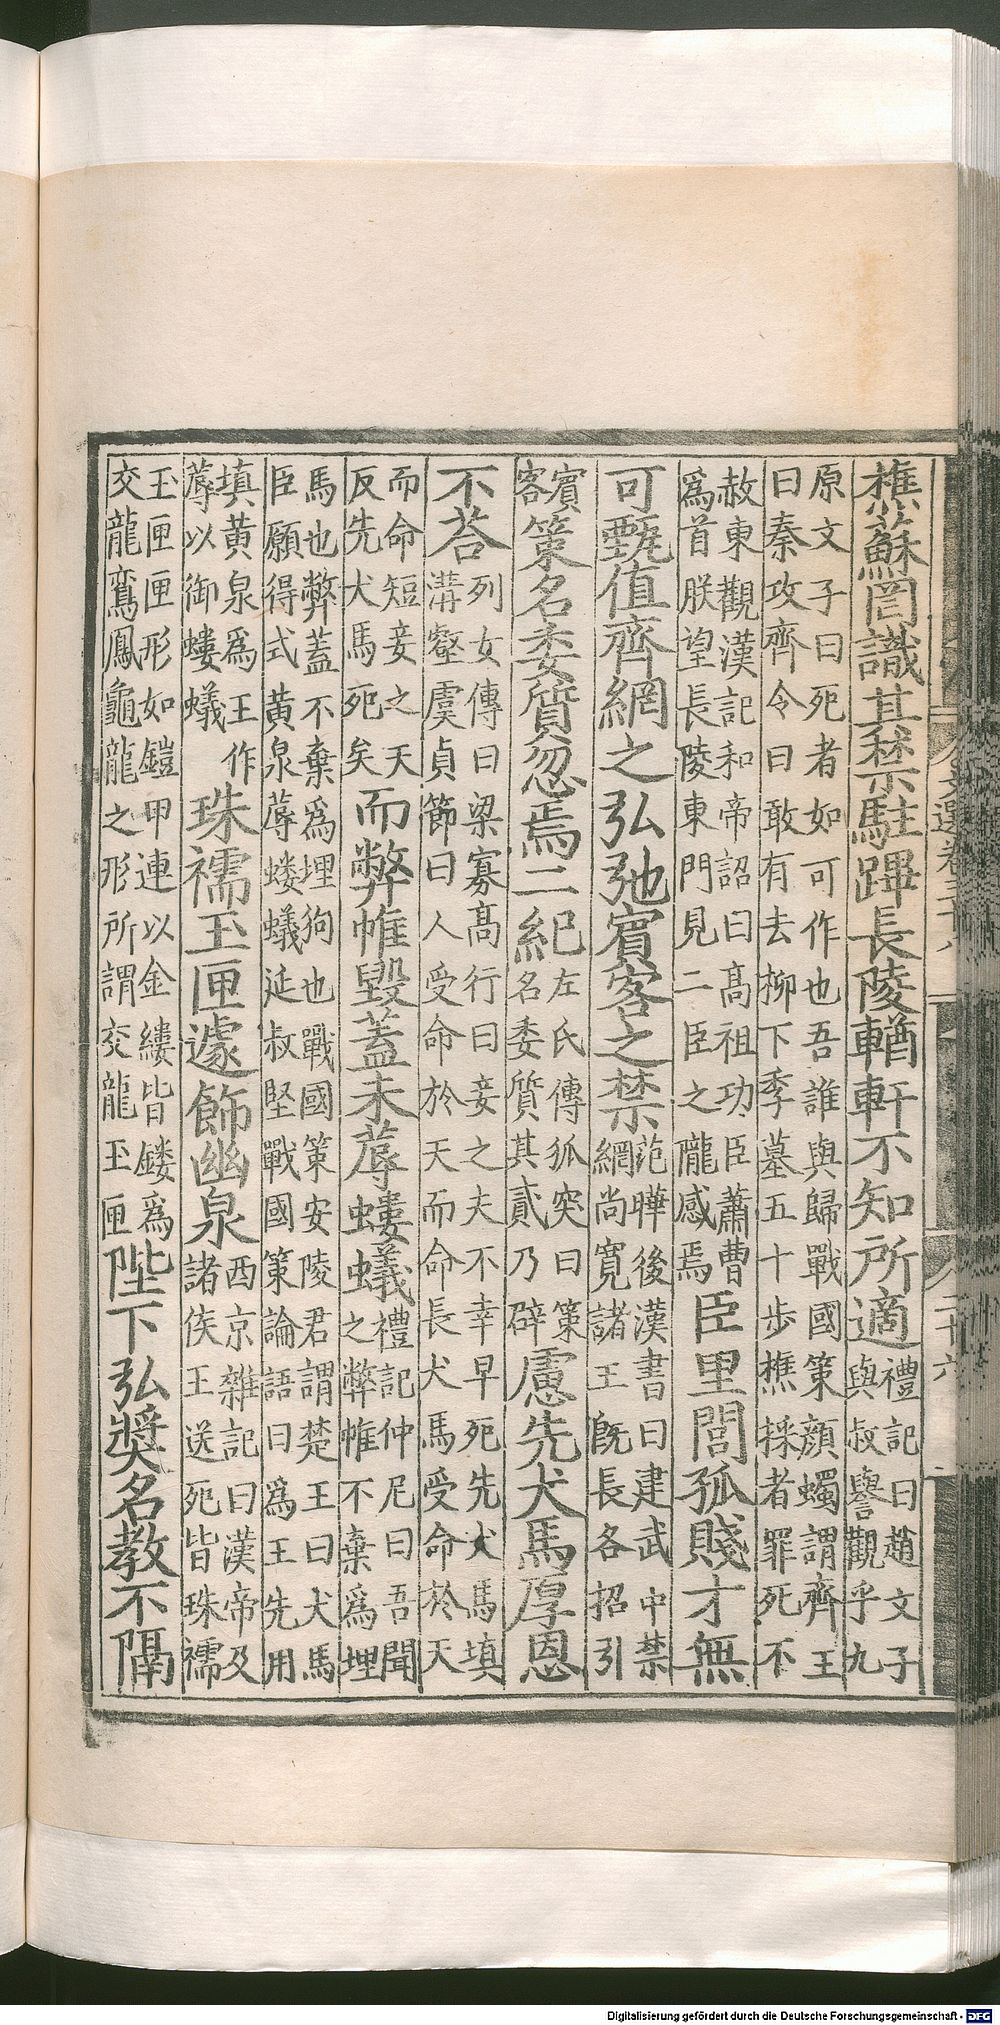 文選卷三十八
二十六
樵蘇罔識其禁駐蹕長陵輶軒不知所適禮記曰趙文子
與叔譽觀乎九
原文子曰死者如可作也吾誰與歸戰國策顏蠋謂齊王
曰秦攻齊令曰敢有去柳下季墓五十步樵採者罪死不
赦東觀漢記和帝詔曰髙祖功臣蕭曹
爲首朕望長陵東門見二臣之隴感焉
臣里閭孤賤才無
可甄值齊網之弘弛賓客之禁
范曄後漢書曰建武中禁
網尚寛諸王旣長各招引
賓
客
策名委質忽焉二紀
左氏傳狐突曰策
名委質其貳乃辟
慮先犬馬厚恩
不荅
列女傳曰梁寡髙行曰妾之夫不幸早死先犬馬填
溝壑虞貞節曰人受命於天而命長犬馬受命於天
而命短妾之夭
反先犬馬死矣
而弊帷毀蓋未蓐螻蟻
禮記仲尼曰吾聞
之弊帷不棄爲埋
馬也弊蓋不棄爲埋狗也戰國策安陵君謂楚王曰犬馬
臣願得式黃泉蓐螻蟻延叔堅戰國策論語曰爲王先用
填黃泉爲王作
蓐以御螻蟻
珠襦玉匣遽飾幽泉
西京雜記曰漢帝及
諸侯王送死皆珠襦
玉匣匣形如鎧甲連以金縷皆鏤爲
交龍鸞鳳龜龍之形所謂交龍玉匣
陛下弘奬名教不隔
Digitalisierung gefördert durch die Deutsche Forschungsgemeinschaft - DFG